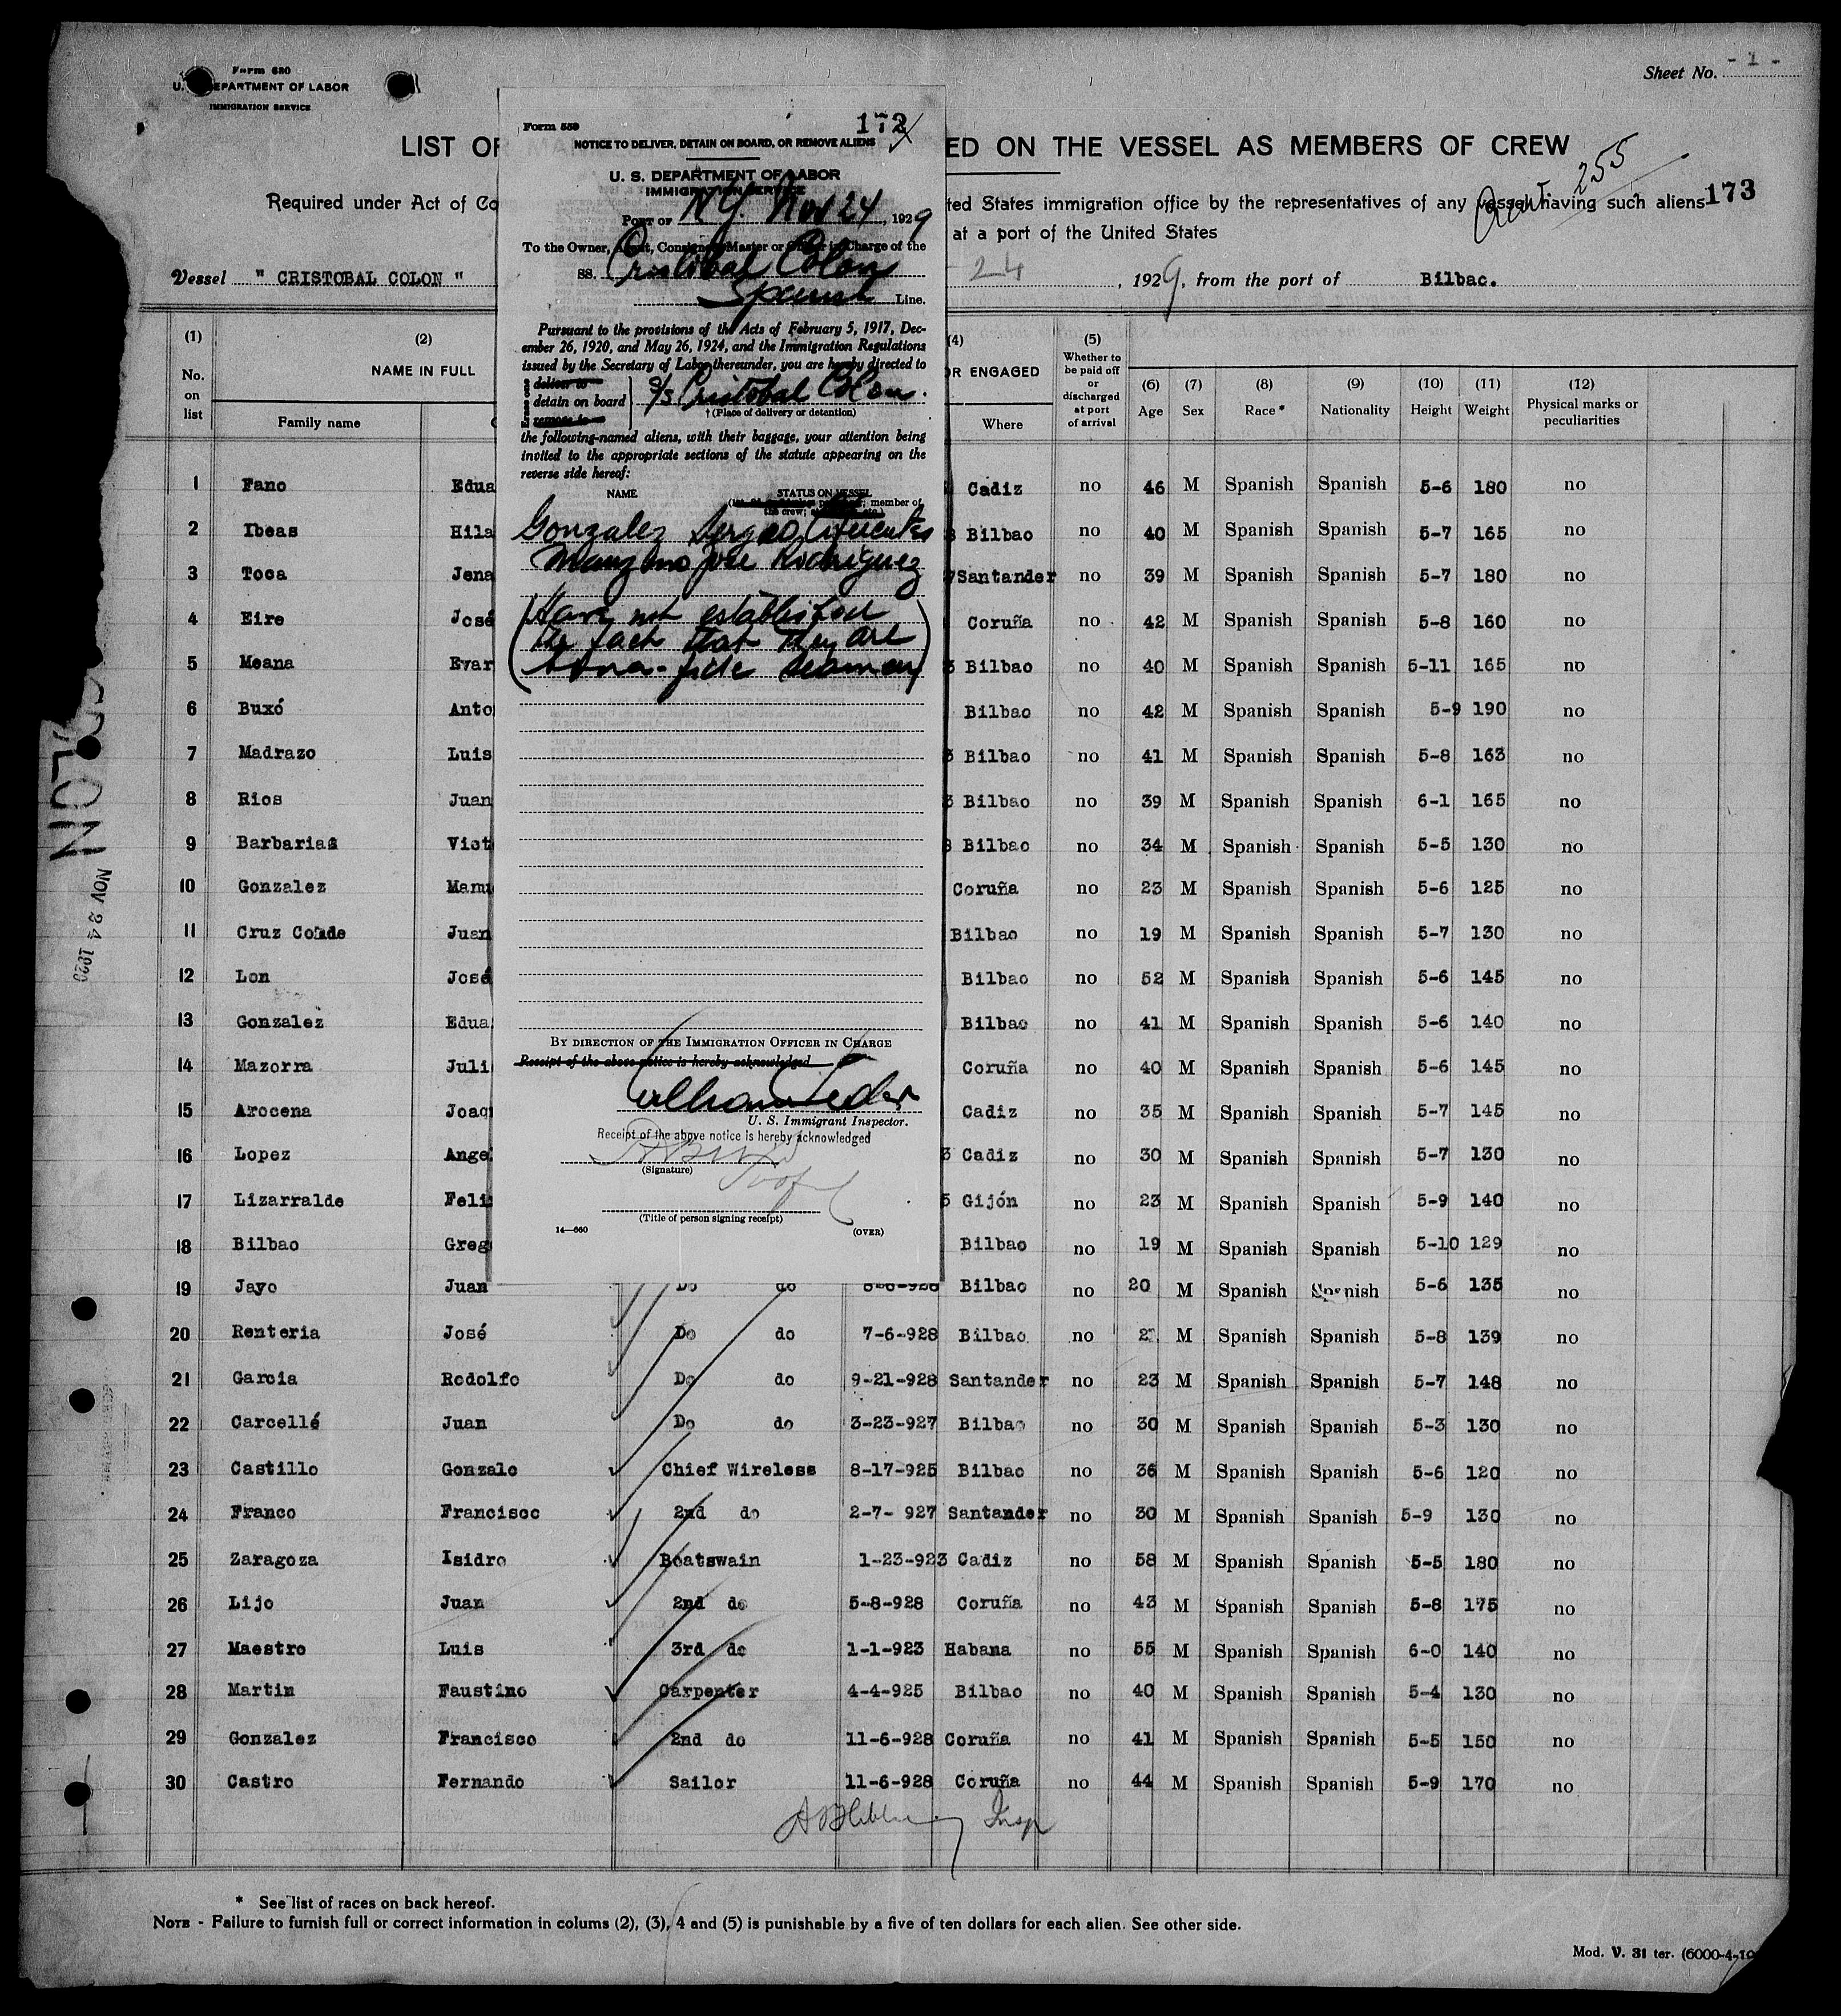 Form 680
U. DEPARTMENT OF LABOR
IMMIGRATION SERVICE
Sheet No. - 1 -
LIST OF
ED ON THE VESSEL AS MEMBERS OF CREW
255
173
Required under Act of Co
ted States immigration office by the representatives of any vessel having such aliens
at a port of the United States
Vessel " CRISTOBAL COLON "
24, 1929, from the port of Bilbao.
Form 559
172
NOTICE TO DELIVER, DETAIN ON BOARD, OR REMOVE ALIENS
U. S. DEPARTMENT OF LABOR
IMMIGRATION SERVICE
PORT OF N.Y. Nov 24, 1929
To the Owner, Agent, Consignee, Master or Officer in Charge of the
SS. Cristobal Colon
Spanish Line.
Pursuant to the provisions of the Acts of February 5, 1917, Dec-
ember 26, 1920, and May 26, 1924, and the Immigration Regulations
issued by the Secretary of Labor thereunder, you are hereby directed to
Erase one
deliver to
detain on board
remove to
S/S Cristobal Colon.
† (Place of delivery or detention)
the following-named aliens, with their baggage, your attention being
invited to the appropriate sections of the statute appearing on the
reverse side hereof:
NAME STATUS ON VESSEL
member of
the crew;
Gonzalez Sergio Cifuentes
Manzano Jose Rodriguez
(Have not established
the fact that they are
bona-fide seamen)
BY DIRECTION OF THE IMMIGRATION OFFICER IN CHARGE
Receipt of the above notice is hereby acknowledged
U. S. Immigrant Inspector.
Receipt of the above notice is hereby acknowledged
(Signature)
(Title of person signing receipt)
14—660 (OVER)
(1) No. on list
(2) NAME IN FULL
Family name
(4)
OR ENGAGED
Where
(5) Whether to be paid off or discharged at port of arrival
(6) Age
(7) Sex
(8) Race *
(9) Nationality
(10) Height
(11) Weight
(12) Physical marks or peculiarities
1 Fano Edua Cadiz no 46 M Spanish Spanish 5-6 180 no
2 Ibeas Hila 8 Bilbao no 40 M Spanish Spanish 5-7 165 no
3 Toca Jena 7 Santander no 39 M Spanish Spanish 5-7 180 no
4 Eire José Coruña no 42 M Spanish Spanish 5-8 160 no
5 Meana Evar 3 Bilbao no 40 M Spanish Spanish 5-11 165 no
6 Buxó Anto Bilbao no 42 M Spanish Spanish 5-9 190 no
7 Madrazo Luis 3 Bilbao no 41 M Spanish Spanish 5-8 163 no
8 Rios Juan 3 Bilbao no 39 M Spanish Spanish 6-1 165 no
9 Barbarias Vict 8 Bilbao no 34 M Spanish Spanish 5-5 130 no
10 Gonzalez Manu Coruña no 23 M Spanish Spanish 5-6 125 no
11 Cruz Conde Juan Bilbao no 19 M Spanish Spanish 5-7 130 no
12 Lon José Bilbao no 52 M Spanish Spanish 5-6 145 no
13 Gonzalez Edua Bilbao no 41 M Spanish Spanish 5-6 140 no
14 Mazorra Juli Coruña no 40 M Spanish Spanish 5-6 145 no
15 Arocena Joaq Cadiz no 35 M Spanish Spanish 5-7 145 no
16 Lopez Ange 3 Cadiz no 30 M Spanish Spanish 5-7 130 no
17 Lizarralde Feli 5 Gijón no 23 M Spanish Spanish 5-9 140 no
18 Bilbao Greg Bilbao no 19 M Spanish Spanish 5-10 129 no
19 Jayo Juan Do do 8-6-928 Bilbao no 20 M Spanish Spanish 5-6 135 no
20 Renteria José Do do 7-6-928 Bilbao no M Spanish Spanish 5-8 139 no
21 Garcia Rodolfo Do do 9-21-928 Santander no 23 M Spanish Spanish 5-7 148 no
22 Carcellé Juan Do do 3-23-927 Bilbao no 30 M Spanish Spanish 5-3 130 no
23 Castillo Gonzalo Chief Wireless 8-17-925 Bilbao no 36 M Spanish Spanish 5-6 120 no
24 Franco Francisco 2nd do 2-7- 927 Santander no 30 M Spanish Spanish 5-9 130 no
25 Zaragoza Isidro Boatswain 1-23-923 Cadiz no 58 M Spanish Spanish 5-5 180 no
26 Lijo Juan 2nd do 5-8-928 Coruña no 43 M Spanish Spanish 5-8 175 no
27 Maestro Luis 3rd do 1-1-923 Habana no 55 M Spanish Spanish 6-0 140 no
28 Martin Faustino Carpenter 4-4-925 Bilbao no 40 M Spanish Spanish 5-4 130 no
29 Gonzalez Francisco 2nd do 11-6-928 Coruña no 41 M Spanish Spanish 5-5 150 no
30 Castro Fernando Sailor 11-6-928 Coruña no 44 M Spanish Spanish 5-9 170 no
Insp
LON
NOV 24 1929
* See list of races on back hereof.
NOTE - Failure to furnish full or correct information in colums (2), (3), 4 and (5) is punishable by a five of ten dollars for each alien. See other side.
Mod. V. 31 ter. (6000-4-19